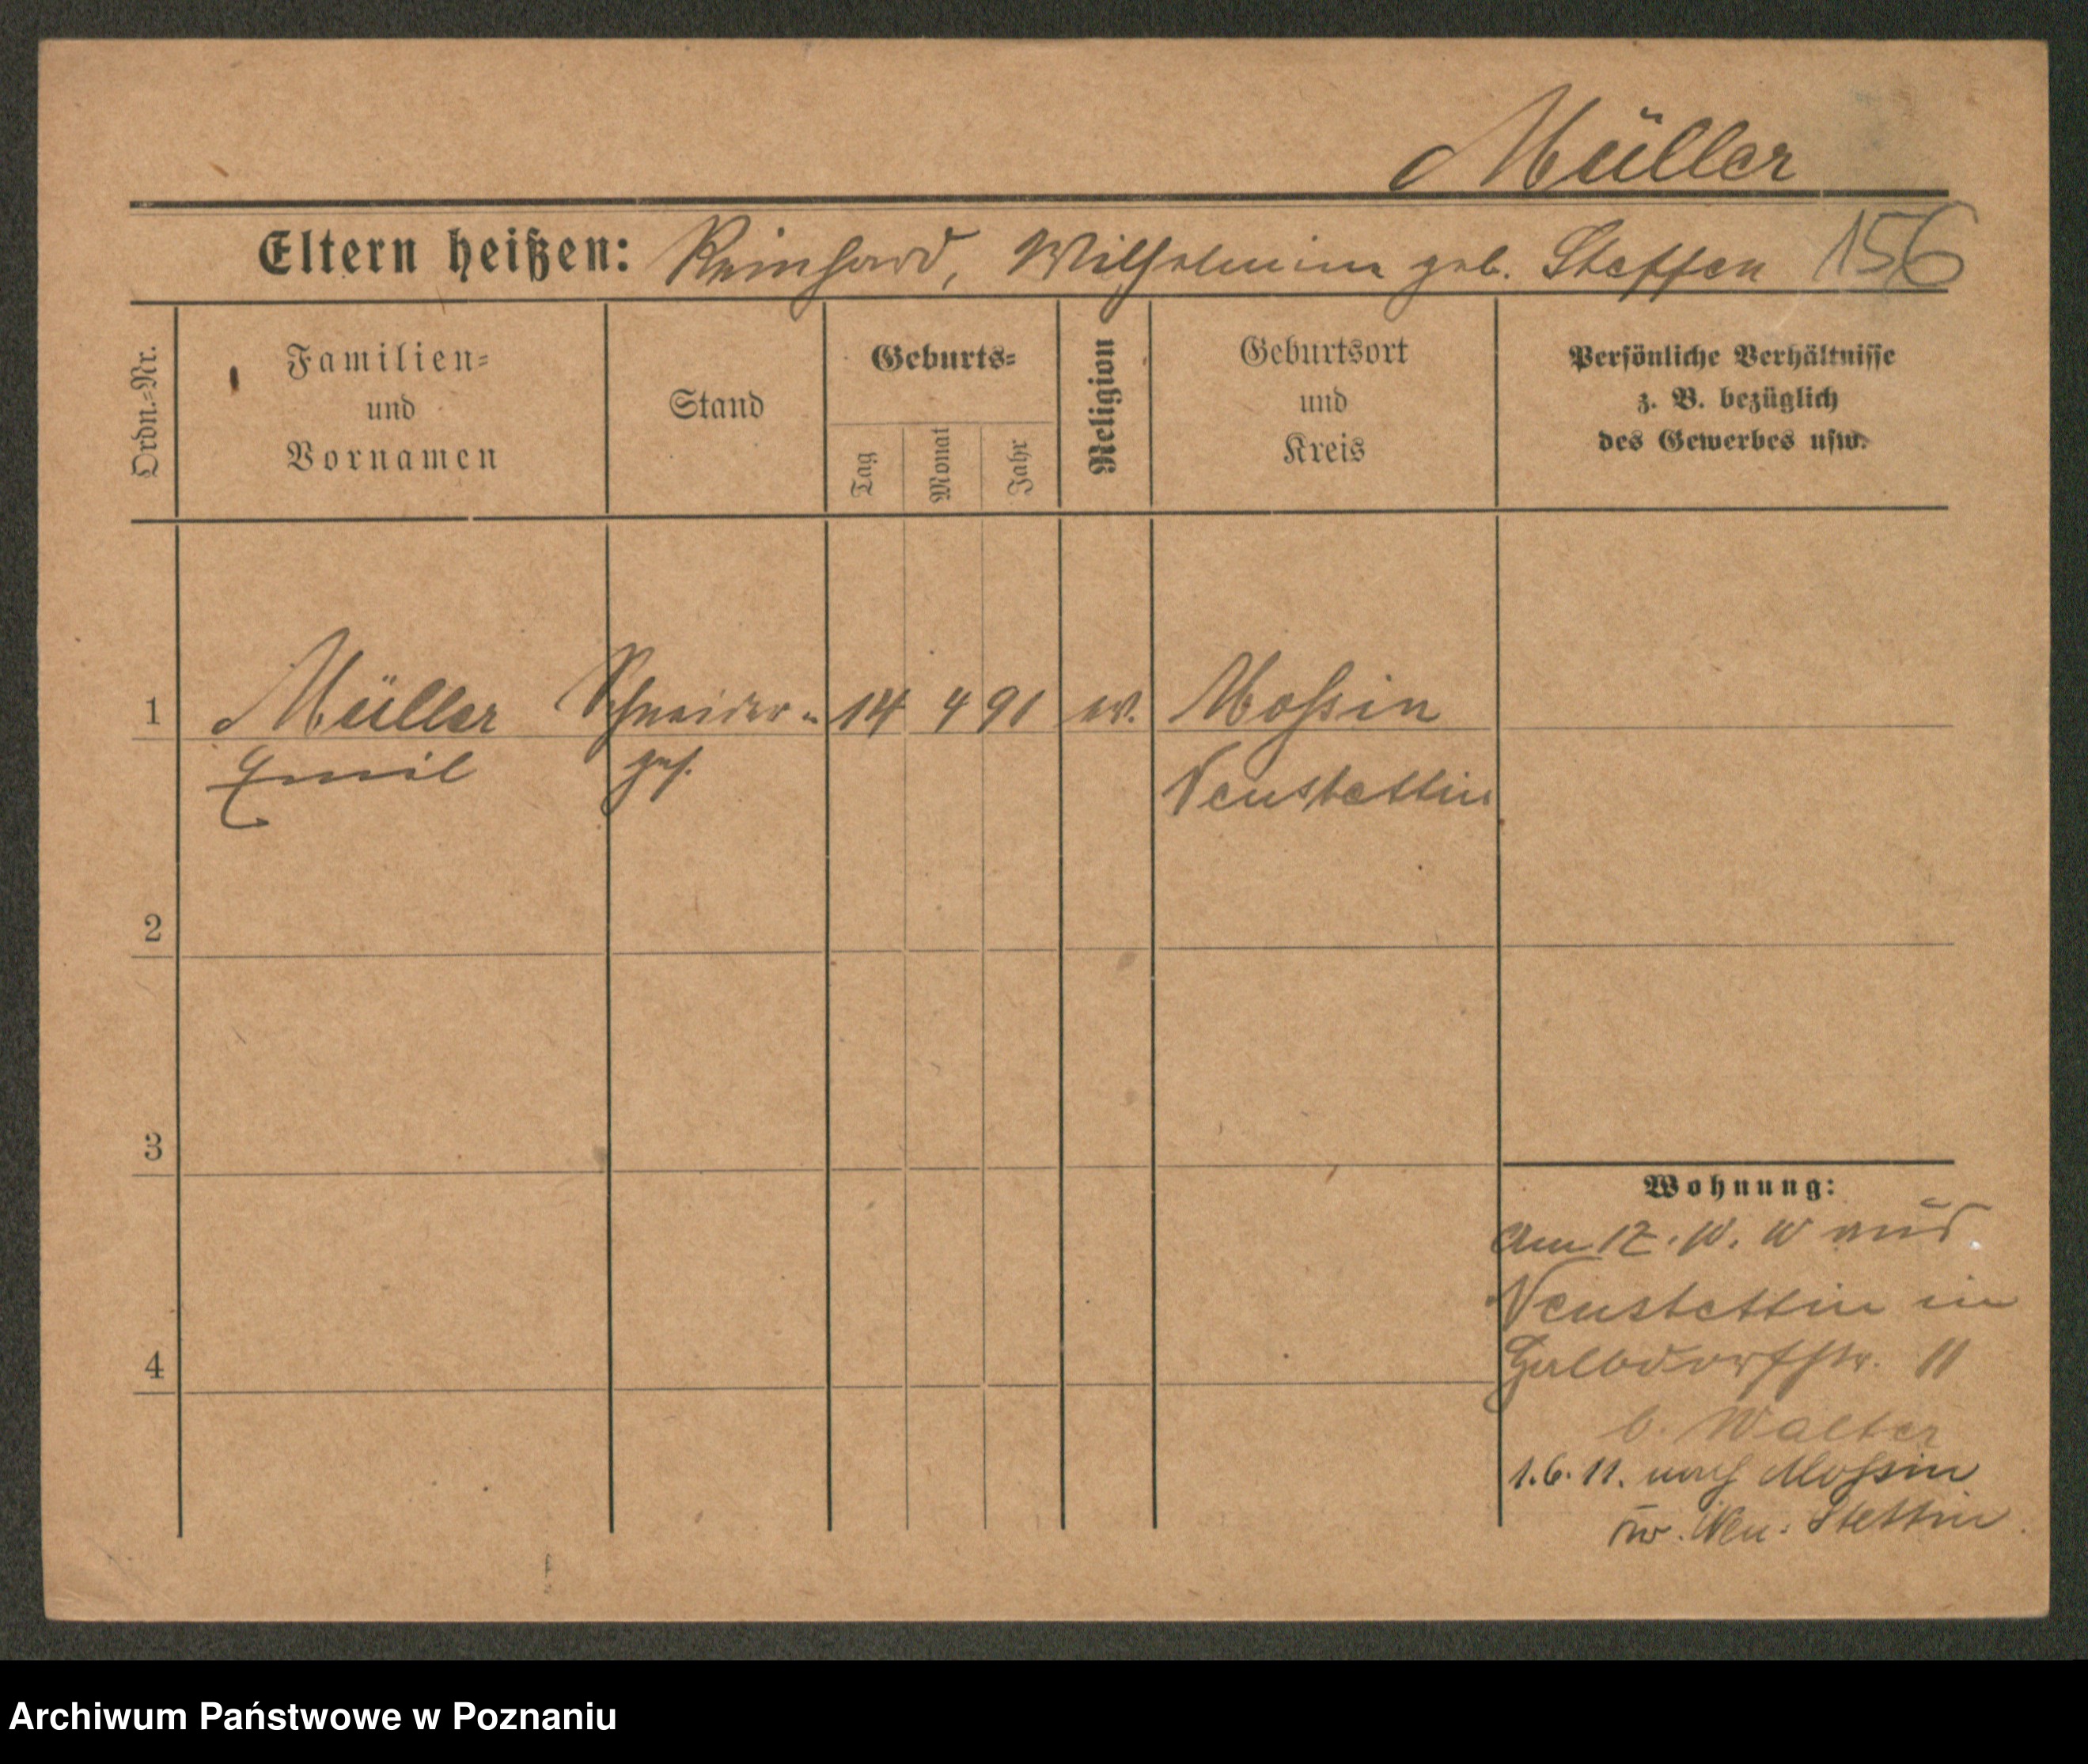 Müller
Eltern heißen: Reinhard, Wilhelmine geb. Steffen 156
Ordn.=Nr.
Familien=
und
Vornamen
Stand
Geburts=
Tag
Monat
Jahr
Religion
Geburtsort
und
Kreis
Persönliche Verhältnisse
z. B. bezüglich
des Gewerbes usw.
1 Müller Schneider= 14 4 91 ev. Mossin
Emil ges. Neustettin
2
3
4
Wohnung:
Am 12. 10. 10 aus
Neustettin in
11
b. Walter
1.6.11. nach Mossin
Neu=Stettin
Archiwum Państwowe w Poznaniu